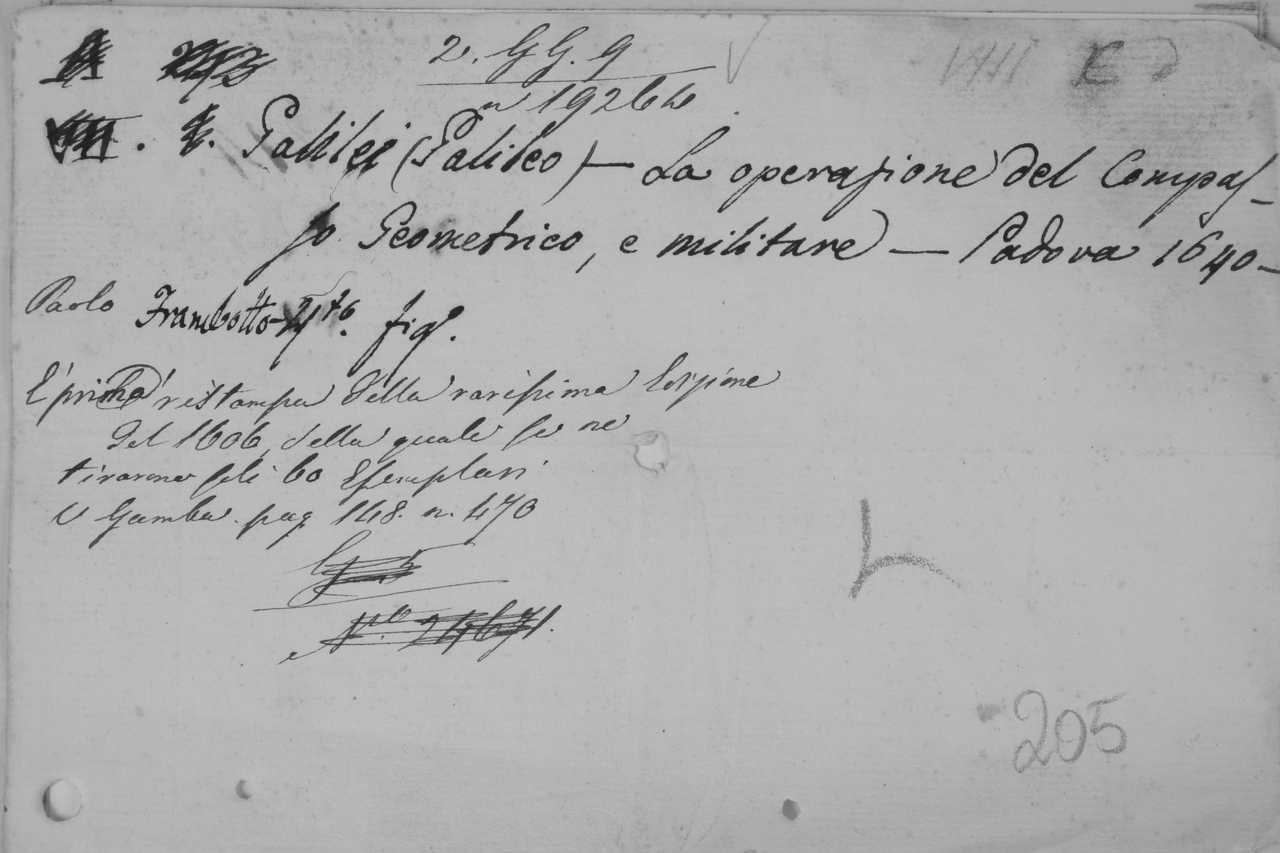 2. GG. 9
n 19266
Galilei (Galileo) — La operazione del Compas-
so Geometrico, e militare — Padova 1640 —
Paolo Frambotto - 4to. figo.
È prima ristampa della rarissima Edizione
del 1606, della quale se ne
tirarono soli 60 Esemplari
V Gamba. pag 148. n. 470
No. 24671.
205